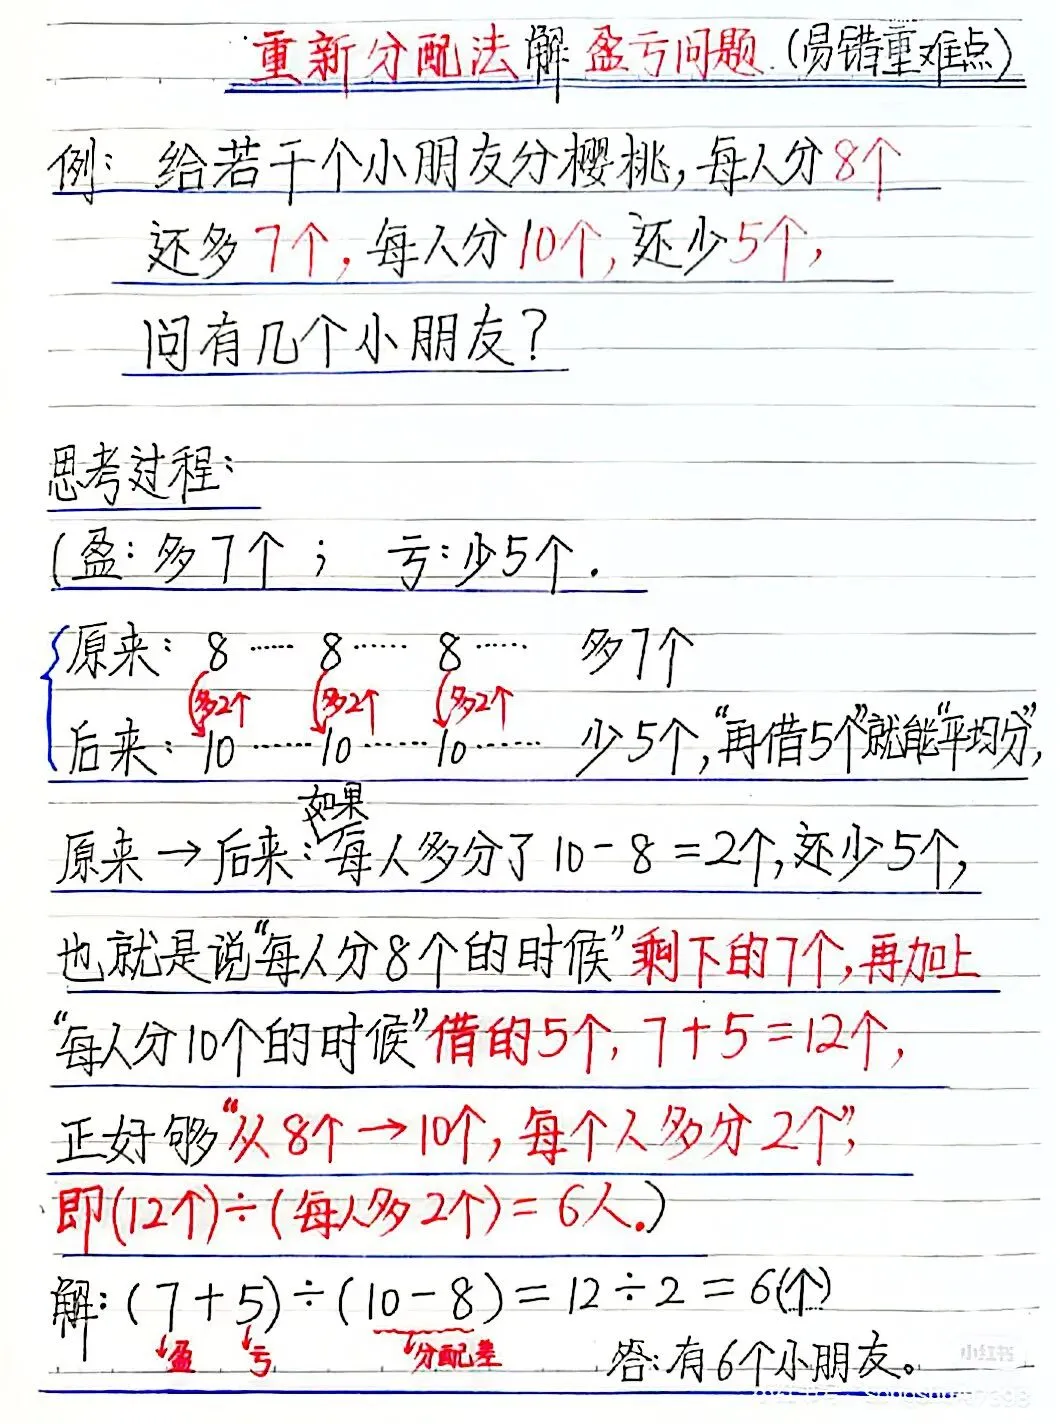 重新分配法解盈亏问题.(易错重难点)
例: 给若干个小朋友分樱桃,每人分8个
还多7个,每人分10个,还少5个,
问有几个小朋友?
思考过程:
(盈:多7个; 亏:少5个.
原来: 8 …… 8 …… 8 …… 多7个
多2个 多2个 多2个
后来: 10 …… 10 …… 10 …… 少5个,“再借5个”就能“平均分”,
如果
原来→后来:每人多分了10-8=2个,还少5个,
也就是说“每人分8个的时候”剩下的7个,再加上
“每人分10个的时候”借的5个,7+5=12个,
正好够“从8个→10个,每个人多分2个”,
即(12个)÷(每人多2个)=6人.)
解:(7+5)÷(10-8)=12÷2=6(个)
盈 亏 分配差
答:有6个小朋友。
小红书